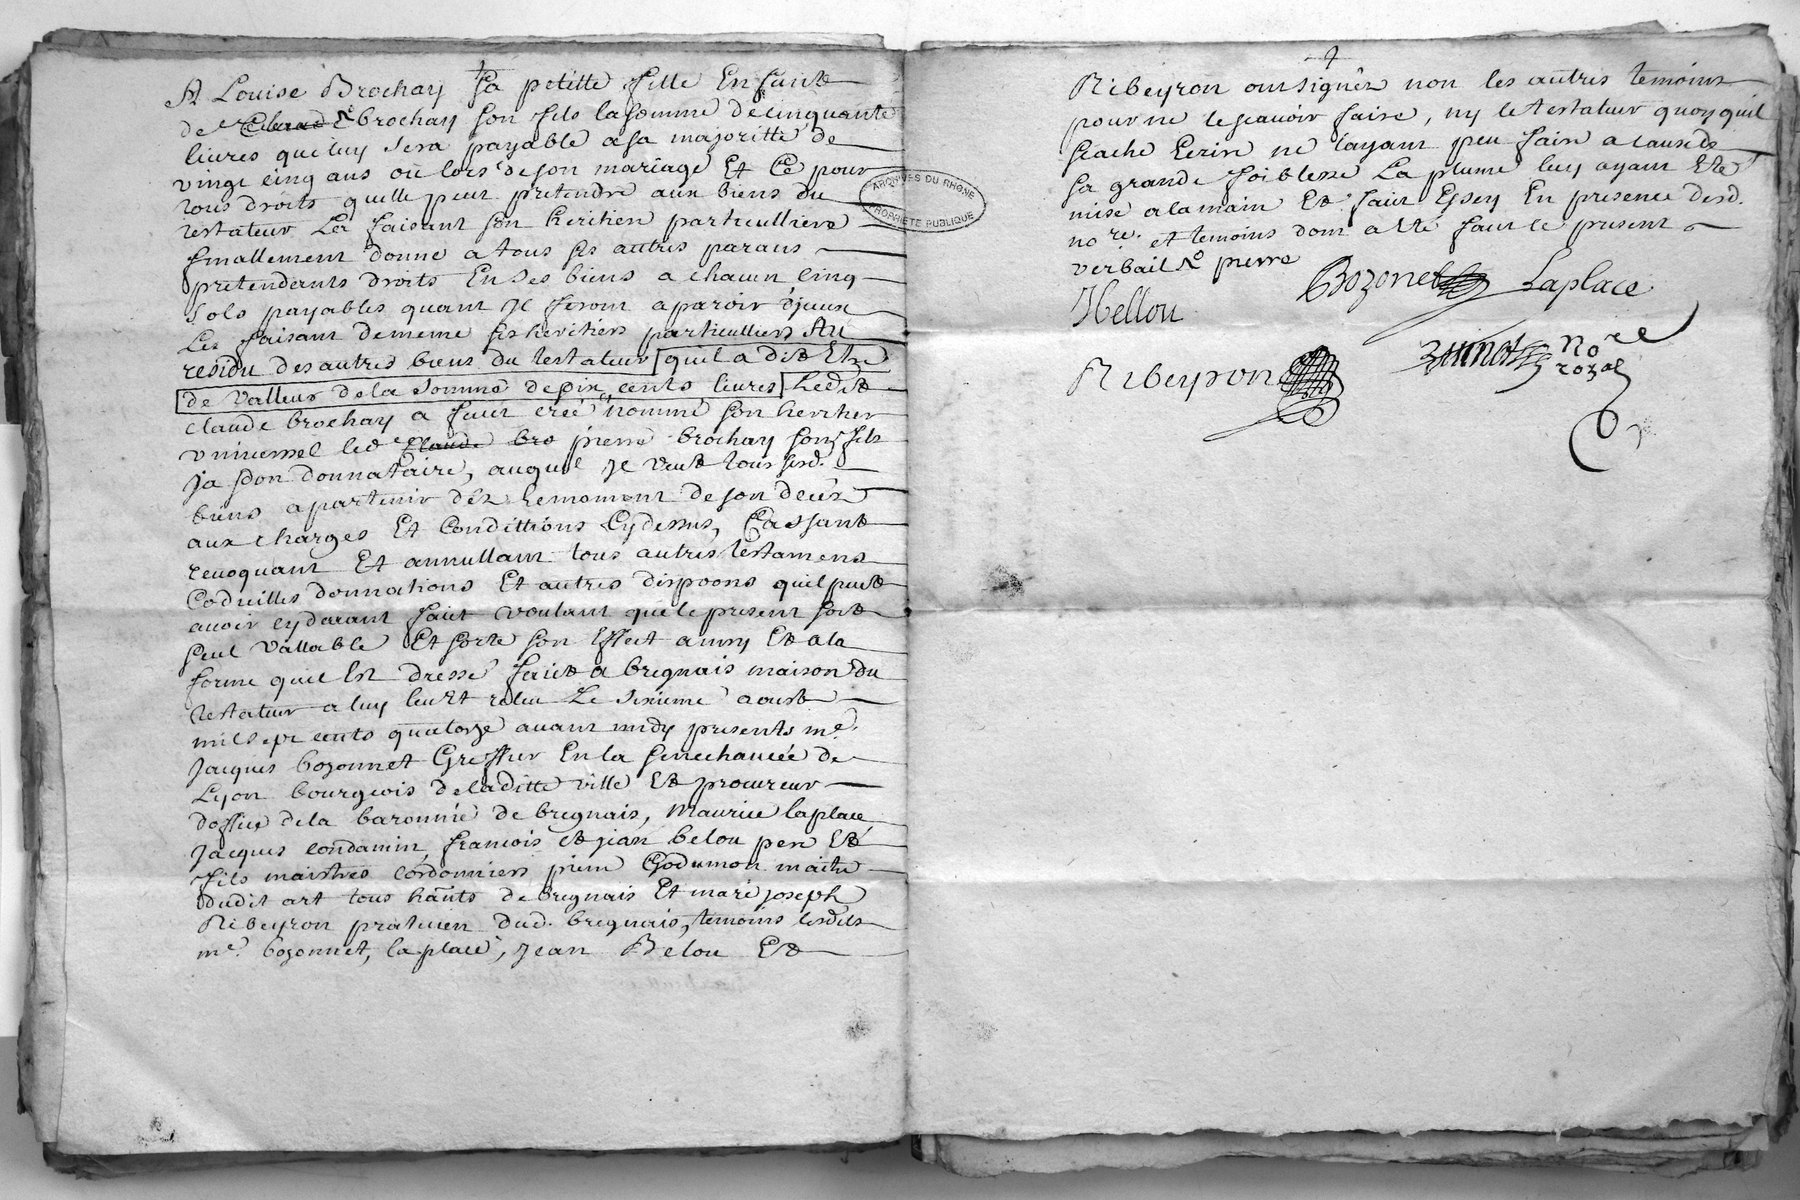 A Louise Brochay sa petitte fille Enfant
de Claude brochay son fils la somme de cinquante
livres que luy sera payable a sa majoritté de
vingt cinq ans ou lors de son mariage Et Ce pour
tous droits quelle peut pretendre aux biens du
testateur La faisant son heritiere particulliere
finallement donne a tous ses autres parans
pretendants droits En ses biens a chacun cinq
solz payables quant Il feront aparoir
Les faisant de meme ses heritiers particulliers Au
residu des autres biens du testateur quil a dit Etre
de valleur de la somme de six cents livres Ledit
claude brochay a fait creé nommé son heritier
universel led. Claude bro pierre brochay son fils
ja son donnataire, auquel Il veut tous sesd.
biens apartenir dés le moment de son decéz
aux charges Et Condittions Cy dessus, Cassant
revoquant Et annullant tous autres testamens
Codicilles donnations Et autres dispoons quil peut
avoir cy devant fait voulant que le present soit
seul vallable Et sorte son Effect a luy Et a la
forme quil Est dressé fait a brignais maison du
testateur a luy leu Et releu Le sixieme aoust
mil sept cents quatorze avant midy presents me.
Jacques bozonnet Greffier En la senechaucée de
Lyon bourgeois de laditte ville Et procureur
doffice de la baronnie de brignais, Maurice laplace
Jacques condamin, francois Et jean belou pere Et
fils maistres cordonniers pierre Godumon maitre
dudit art tous hants de brignais Et mare joseph
Ribeyron praticien dud. brignais, temoins lesdits
me. bozonnet, la place, jean Belou Et
Ribeyron ont signéz non les autres temoins
pour ne le scavoir faire, ny le testateur quoy quil
scache Ecrire ne layant peu faire a cause de
sa grande foiblesse La plume luy ayant Eté
mise a la main Et fait Essey En presence desd.
nore. et temoins dont a Eté fait le present
verbail Ro pierre
Bozonet Laplace
Hellou
Ribeyron nore
royal
ARCHIVES DU RHONE
PROPRIETE PUBLIQUE